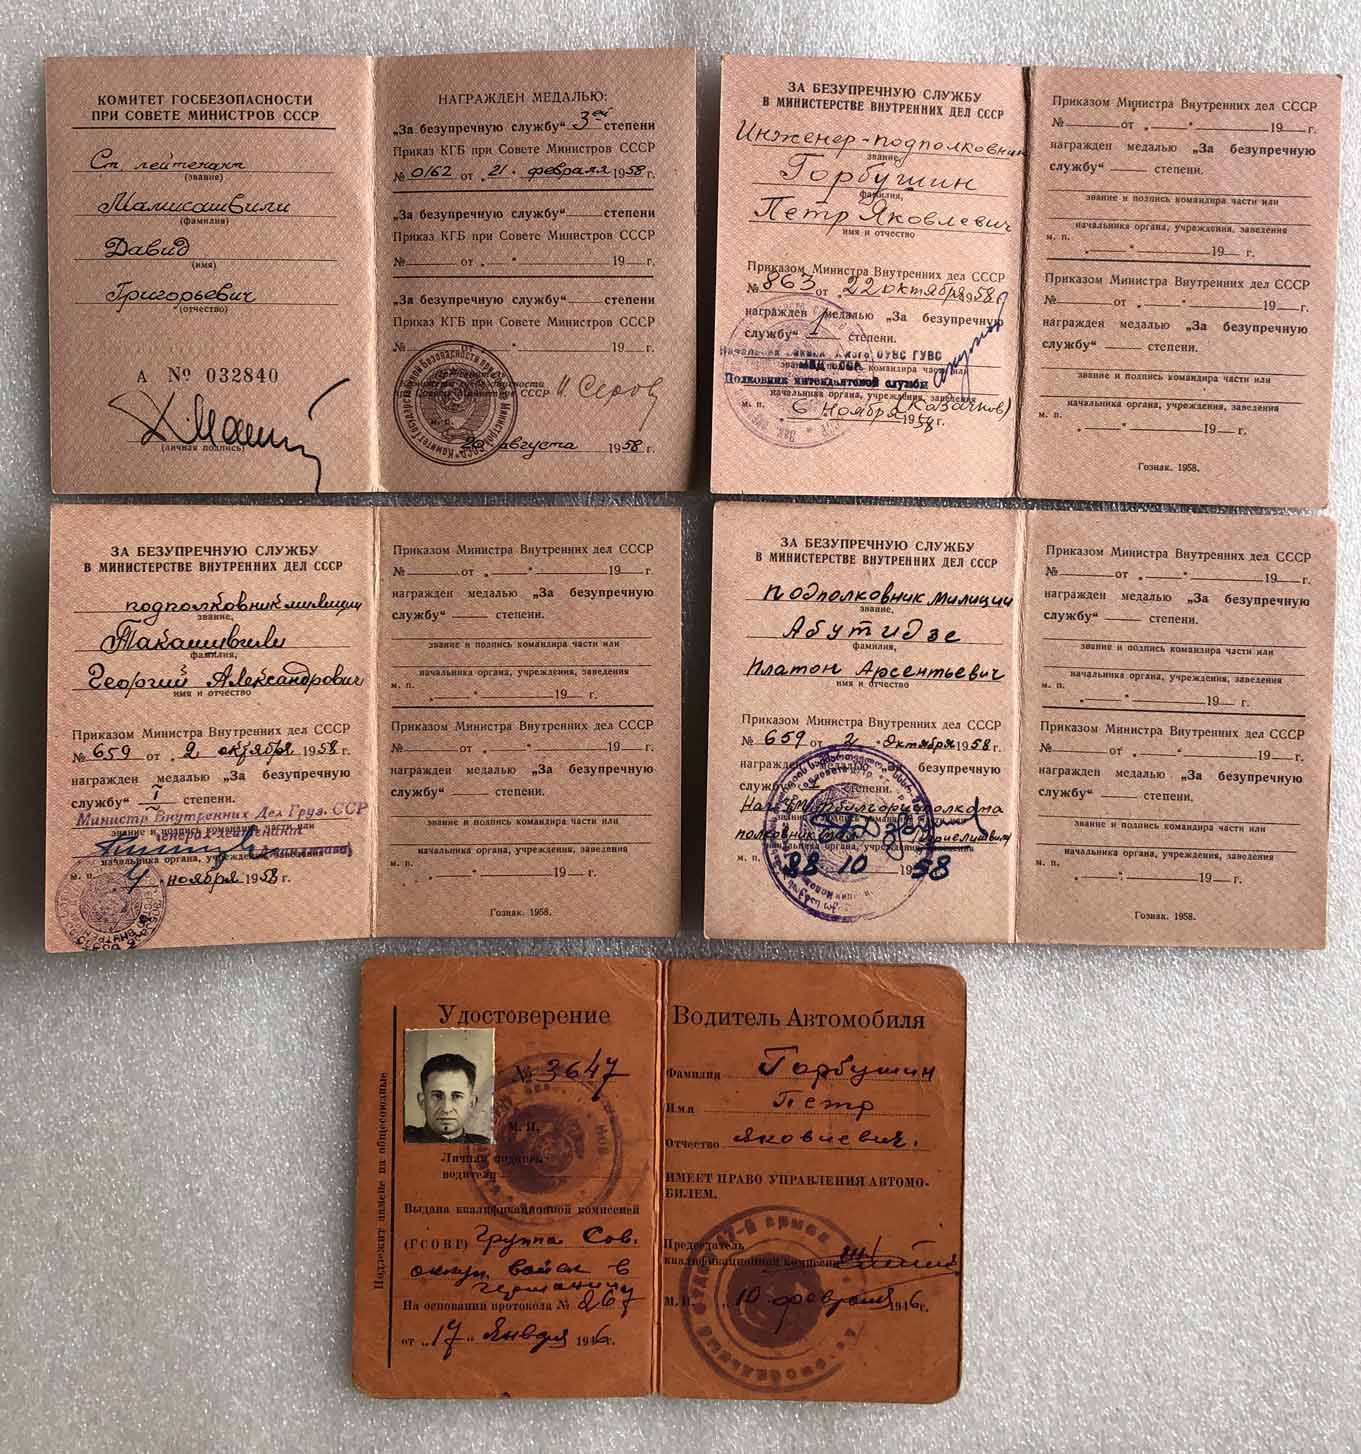 КОМИТЕТ ГОСБЕЗОПАСНОСТИ
ПРИ СОВЕТЕ МИНИСТРОВ СССР
Ст. лейтенант
(звание)
Мамисашвили
(фамилия)
Давид
(имя)
Григорьевич
(отчество)
А № 032840
(личная подпись)
НАГРАЖДЕН МЕДАЛЬЮ:
„За безупречную службу“ 3ей степени
Приказ КГБ при Совете Министров СССР
№ 0162 от „21“ февраля 1958 г.
„За безупречную службу“ степени
Приказ КГБ при Совете Министров СССР
№ от „ “ 19 г.
„За безупречную службу“ степени
Приказ КГБ при Совете Министров СССР
№ от 19 г.
при Совете Министров СССР И Серов
м. п.
20 августа 1958 г.
ЗА БЕЗУПРЕЧНУЮ СЛУЖБУ
В МИНИСТЕРСТВЕ ВНУТРЕННИХ ДЕЛ СССР
Инженер-подполковник
звание,
Горбушин
фамилия,
Петр Яковлевич
имя и отчество
Приказом Министра Внутренних дел СССР
№ 863 от 22 октября 1958 г.
награжден медалью „За безупречную
службу“ I степени.
ОУВС ГУВС
МВД СССР
Полковник интендантской службы
начальника органа, учреждения, заведения
(Казачков)
м. п. 6 ноября 1958 г.
Приказом Министра Внутренних дел СССР
№ от „ “ 19 г.
награжден медалью „За безупречную
службу“ степени.
звание и подпись командира части или
начальника органа, учреждения, заведения
м. п. „ “ 19 г.
Приказом Министра Внутренних дел СССР
№ от „ “ 19 г.
награжден медалью „За безупречную
службу“ степени.
звание и подпись командира части или
начальника органа, учреждения, заведения
м. п. „ “ 19 г.
Гознак. 1958.
ЗА БЕЗУПРЕЧНУЮ СЛУЖБУ
В МИНИСТЕРСТВЕ ВНУТРЕННИХ ДЕЛ СССР
подполковник милиции
звание,
Такашвили
фамилия,
Георгий Александрович
имя и отчество
Приказом Министра Внутренних дел СССР
№ 659 от 2 октября 1958 г.
награжден медалью „За безупречную
службу“ I степени.
Министр Внутренних Дел Груз. ССР
звание и подпись командира части или
генерал-лейтенант
начальника органа, учреждения, заведения
м. п. 4 ноября 1958 г.
Приказом Министра Внутренних дел СССР
№ от „ “ 19 г.
награжден медалью „За безупречную
службу“ степени.
звание и подпись командира части или
начальника органа, учреждения, заведения
м. п. „ “ 19 г.
Приказом Министра Внутренних дел СССР
№ от „ “ 19 г.
награжден медалью „За безупречную
службу“ степени.
звание и подпись командира части или
начальника органа, учреждения, заведения
м. п. „ “ 19 г.
Гознак. 1958.
ЗА БЕЗУПРЕЧНУЮ СЛУЖБУ
В МИНИСТЕРСТВЕ ВНУТРЕННИХ ДЕЛ СССР
подполковник милиции
звание,
Абутидзе
фамилия,
Платон Арсентьевич
имя и отчество
Приказом Министра Внутренних дел СССР
№ 659 от 2 октября 1958 г.
награжден медалью „За безупречную
службу“ I степени.
звание и подпись командира части или
полковник
начальника органа, учреждения, заведения
м. п. 28 10 1958
Приказом Министра Внутренних дел СССР
№ от „ “ 19 г.
награжден медалью „За безупречную
службу“ степени.
звание и подпись командира части или
начальника органа, учреждения, заведения
м. п. „ “ 19 г.
Приказом Министра Внутренних дел СССР
№ от „ “ 19 г.
награжден медалью „За безупречную
службу“ степени.
звание и подпись командира части или
начальника органа, учреждения, заведения
м. п. „ “ 19 г.
Гознак. 1958.
Подлежит замене на общесоюзные
Удостоверение
№ 3647
М. П.
Личная подпись
водителя
Выдана квалификационной комиссией
(ГСОВГ) Группа Сов.
оккуп. войск в
Германии
На основании протокола № 267
от „17“ Января 1946 г.
Водитель Автомобиля
Фамилия Горбушин
Имя Петр
Отчество Яковлевич.
ИМЕЕТ ПРАВО УПРАВЛЕНИЯ АВТОМО-
БИЛЕМ.
Председатель
квалификационной комиссии
М. П. „10 февраля 1946 г.